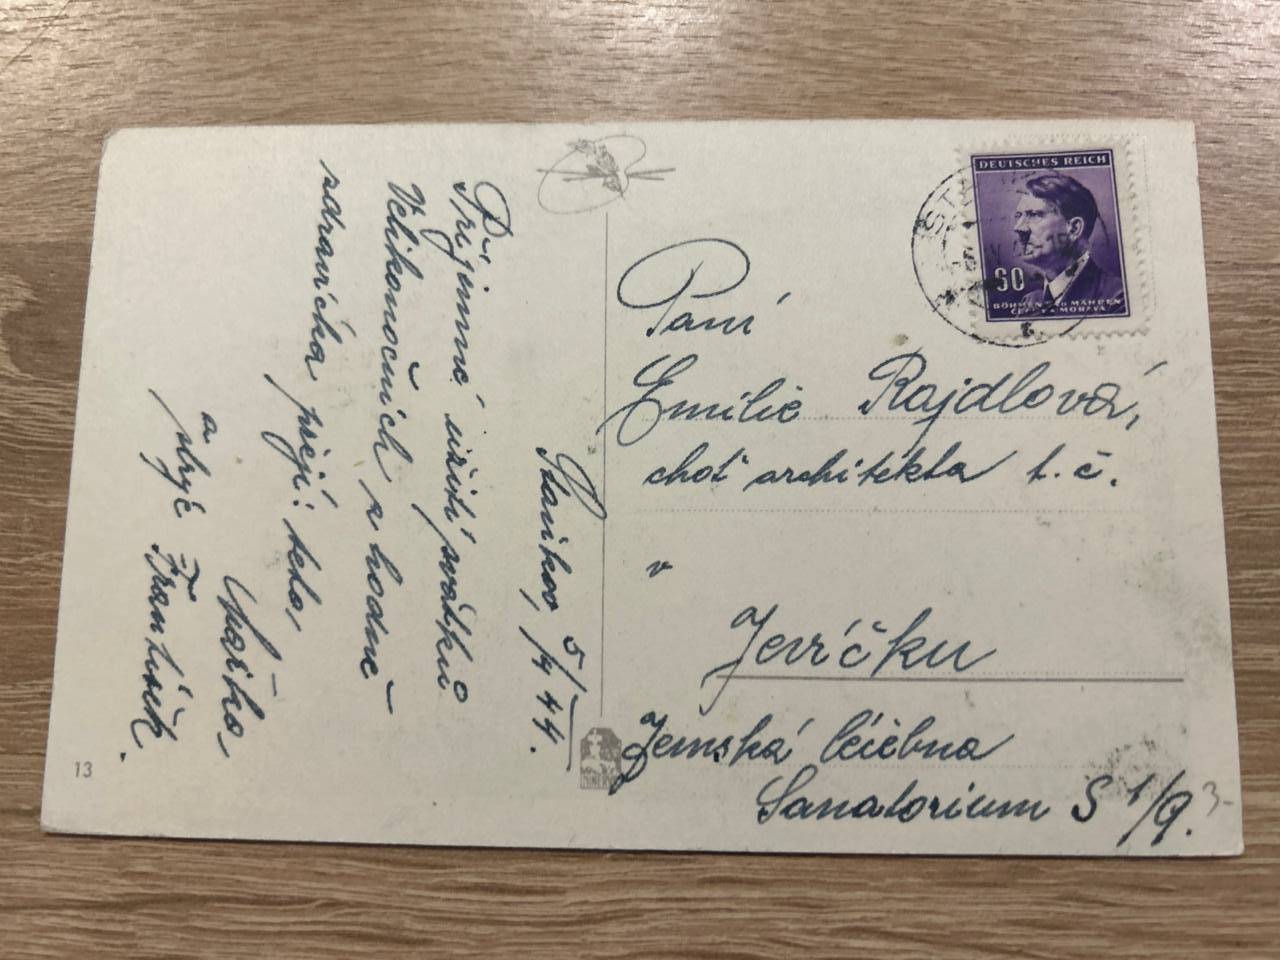 Staňkov, 5/4 44.
Příjemné užití svátků
Velikonočních a hodně
zdravíčka přejí: teta,
Mařka,
a strýc František.
13
DEUTSCHES REICH
60
BÖHMEN UND MÄHREN
ČECHY A MORAVA
Paní
Emilie Rajdlová,
choť architekta t. č.
v
Jevíčku
Zemská léčebna
Sanatorium S 1/9.
3-